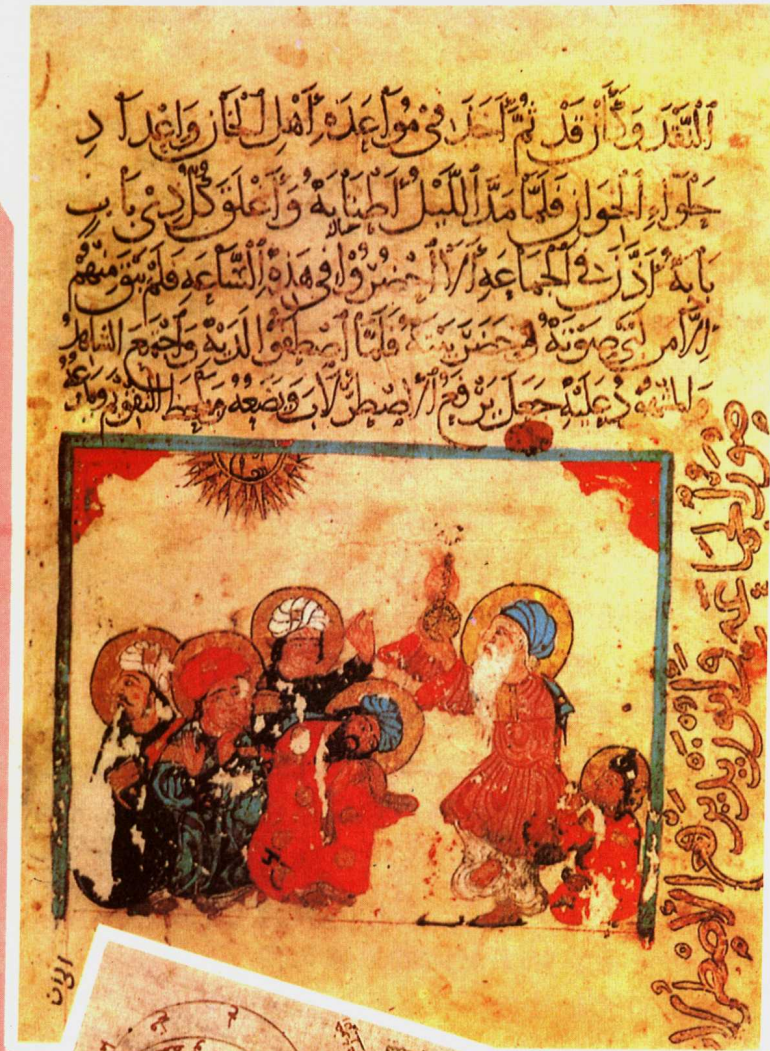 اَلنَّقْدَ وَكَأَنْ قَدْ ثُمَّ أَخَذَ فِي مُوَاعَدَةِ أَهْلِ الْخَانِ وَإِعْدَادِ
حَلْوَاءِ الْخِوَانِ فَلَمَّا مَدَّ اللَّيْلُ أَطْنَابَهُ وَأَغْلَقَ كُلُّ ذِي بَابٍ
بَابَهُ أَذَّنَ فِي الْجَمَاعَةِ أَلَا احْضُرُوا فِي هَذِهِ السَّاعَةِ فَلَمْ يَبْقَ مِنْهُمْ
إِلَّا مَنْ لَبَّى صَوْتَهُ وَحَضَرَ بَيْتَهُ فَلَمَّا اصْطَفُّوا لَدَيْهِ وَاجْتَمَعَ الشَّاهِدُ
وَالْمَشْهُودُ عَلَيْهِ جَعَلَ يَرْفَعُ الْأَصْطُرْلَابَ وَيَضَعُهُ وَيَلْحَظُ التَّقْوِيمَ وَيَدَعُهُ
صورة الجماعة وأبو زيد يرفع الأصطرلا